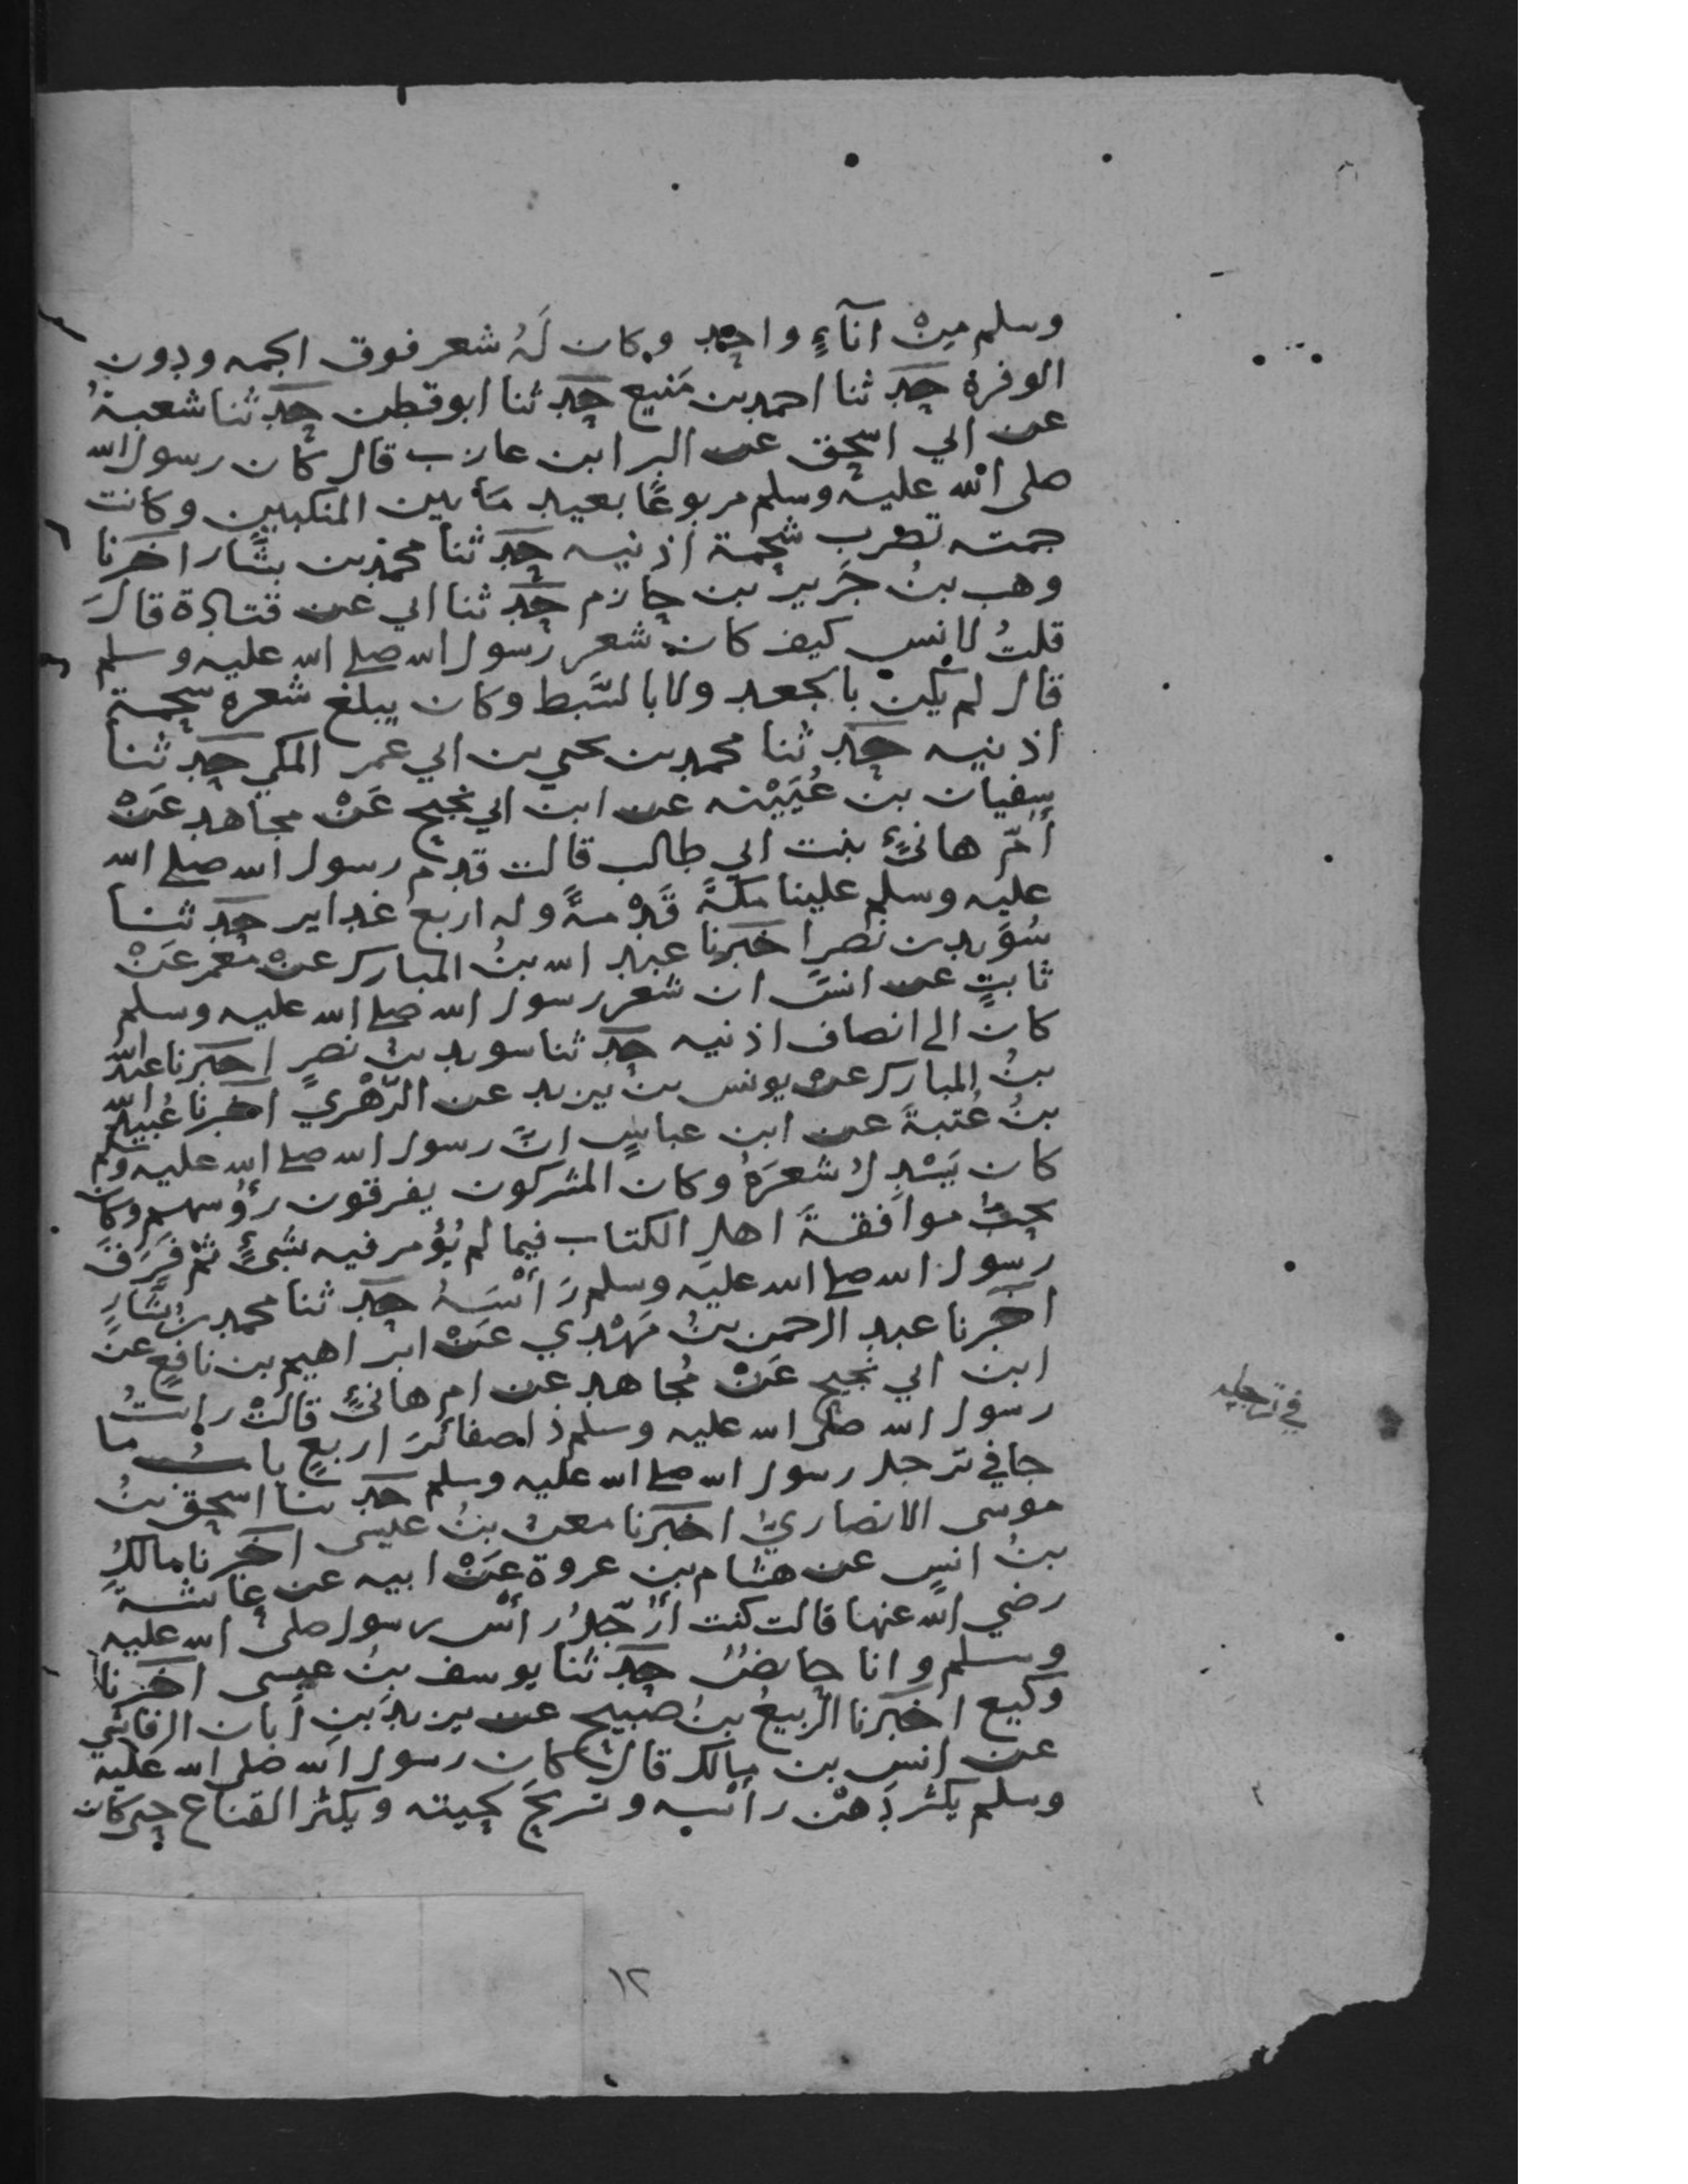 وسلم مِنْ اناءٍ واحِدٍ وكان لَهُ شعر فوق الجمه ودون
الوفرة حَدثنا احمد بن مَنيع حَدثنا ابو قطن حَدثنا شعبةُ
عن ابي اسحق عن البرا بن عازب قال كان رسول الله
صلى الله عليه وسلم مربوعًا بعيد مَا بين المنكبين وكانت
جمته تضرب شحمة اذنيه حَدثنا محمد بن بشَّار اخبرنا
وهب بنُ جَرير بن حازم حَدثنا ابي عن قتادة قالَ
قلتُ لانس كيف كان شعر رسول الله صلى الله عليه وسلم
قال لم يكن بالجعد ولا بالسَّبط وكان يبلغ شعره شحمة
اذنيه حَدثنا محمد بن يحيى بن ابي عمر المكي حَدثنا
سفيان بن عُيَيْنه عن ابن ابي نجيح عَنْ مجاهد عَنْ
أُمّ هانئٍ بنت ابي طالب قالت قدم رسول الله صلى الله
عليه وسلم علينا مكةَ قَدْمةً وله اربع غداير حَدثنا
سُوَيد بن نصرٍ اخبرنا عبد الله بنُ المبارك عن معمر عَنْ
ثابتٍ عن انسٍ ان شعر رسول الله صلى الله عليه وسلم
كان الى انصاف اذنيه حَدثنا سويد بن نصرٍ اخبرنا عبد الله
بنُ المبارك عن يونس بن يزيد عن الزّهْري اخبرنا عُبيد الله
بنُ عُتبةَ عن ابن عباسٍ انَّ رسول الله صلى الله عليه وسلم
كان يَسْدِل شعرَهُ وكان المشركون يفرقون رؤُسهم وكان
يحبُّ موافقةَ اهلِ الكتاب فيما لم يُؤمر فيه بشئٍ ثم فَرَقَ
رسول الله صلى الله عليه وسلم رَاْسَهُ حَدثنا محمد بنُ بشّارٍ
اخبرنا عبد الرحمن بنُ مَهْدي عَنْ ابراهيم بن نافعٍ عن
ابن ابي نجيح عَنْ مُجاهد عن ام هانئٍ قالتْ رايتُ
رسول الله صلى الله عليه وسلم ذا ضفائرَ اربعٍ بابُ ما
جا في ترجل رسول الله صلى الله عليه وسلم حَدثنا اسحق بنُ
موسى الانصاريُّ اخبرنا معن بنُ عيسى اخبرنا مالكُ
بنُ انسٍ عن هشام بن عروة عَنْ ابيه عن عائشةَ
رضي الله عنها قالت كنت اُرَجّلُ رأس رسول صلى الله عليه
وسلم وانا حائضٌ حَدثنا يوسف بنُ عيسى اخبرنا
وكيع اخبرنا الربيعُ بنُ صبيح عن يزيد بن أبان الرقاشي
عن انس بن مالك قال كان رسول الله صلى الله عليه
وسلم يكثر دَهْن رأسه وتسريحَ لحيته ويكثر القناع حتى كان
في ترجله
١٢